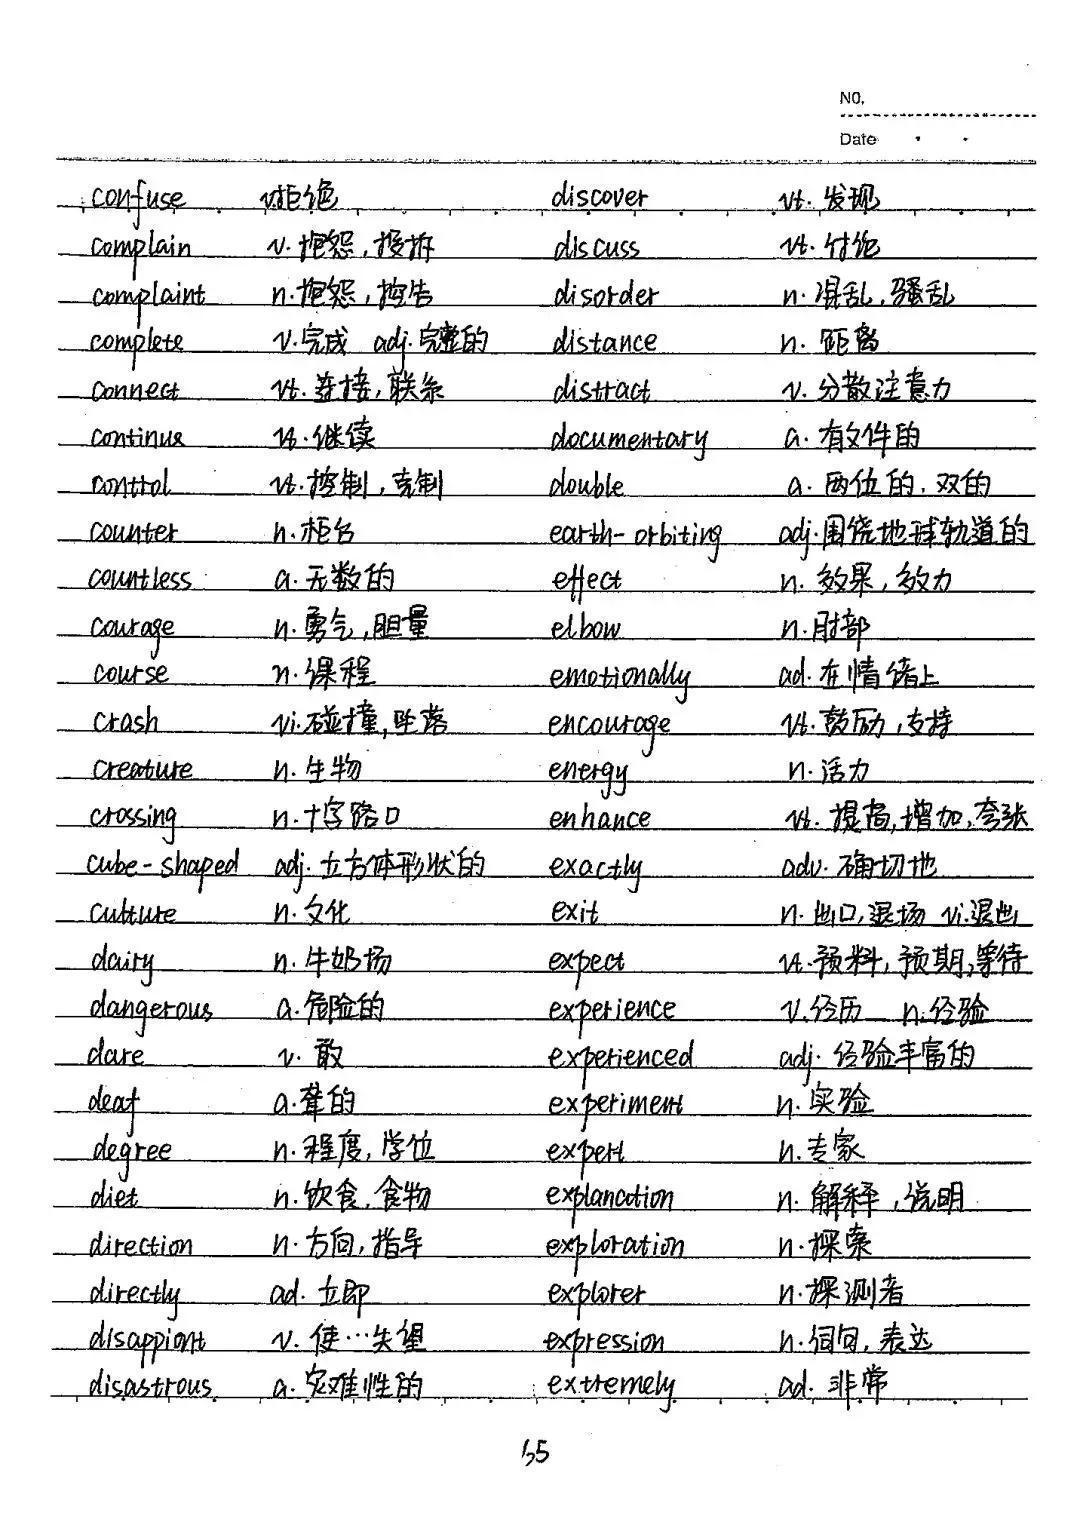 NO.
Date
confuse v.拒绝 discover vt.发现
complain v.抱怨,投拆 discuss vt.讨论
complaint n.抱怨,控告 disorder n.混乱,骚乱
complete v.完成 adj.完整的 distance n.距离
connect vt.连接,联系 distract v.分散注意力
continue vt.继续 documentary a.有文件的
control vt.控制,克制 double a.两位的.双的
counter n.柜台 earth-orbiting adj.围绕地球轨道的
countless a.无数的 effect n.效果,效力
courage n.勇气,胆量 elbow n.肘部
course n.课程 emotionally ad.在情绪上
crash vi.碰撞,坠落 encourage vt.鼓励,支持
creature n.生物 energy n.活力
crossing n.十字路口 enhance vt.提高,增加,夸张
cube-shaped adj.立方体形状的 exactly adv.确切地
culture n.文化 exit n.出口,退场 vi.退出
dairy n.牛奶场 expect vt.预料,预期,等待
dangerous a.危险的 experience v.经历 n.经验
dare v.敢 experienced adj.经验丰富的
deaf a.聋的 experiment n.实验
degree n.程度,学位 expert n.专家
diet n.饮食,食物 explanation n.解释,说明
direction n.方向,指导 exploration n.探索
directly ad.立即 explorer n.探测者
disappiont v.使…失望 expression n.词句,表达
disastrous a.灾难性的 extremely ad.非常